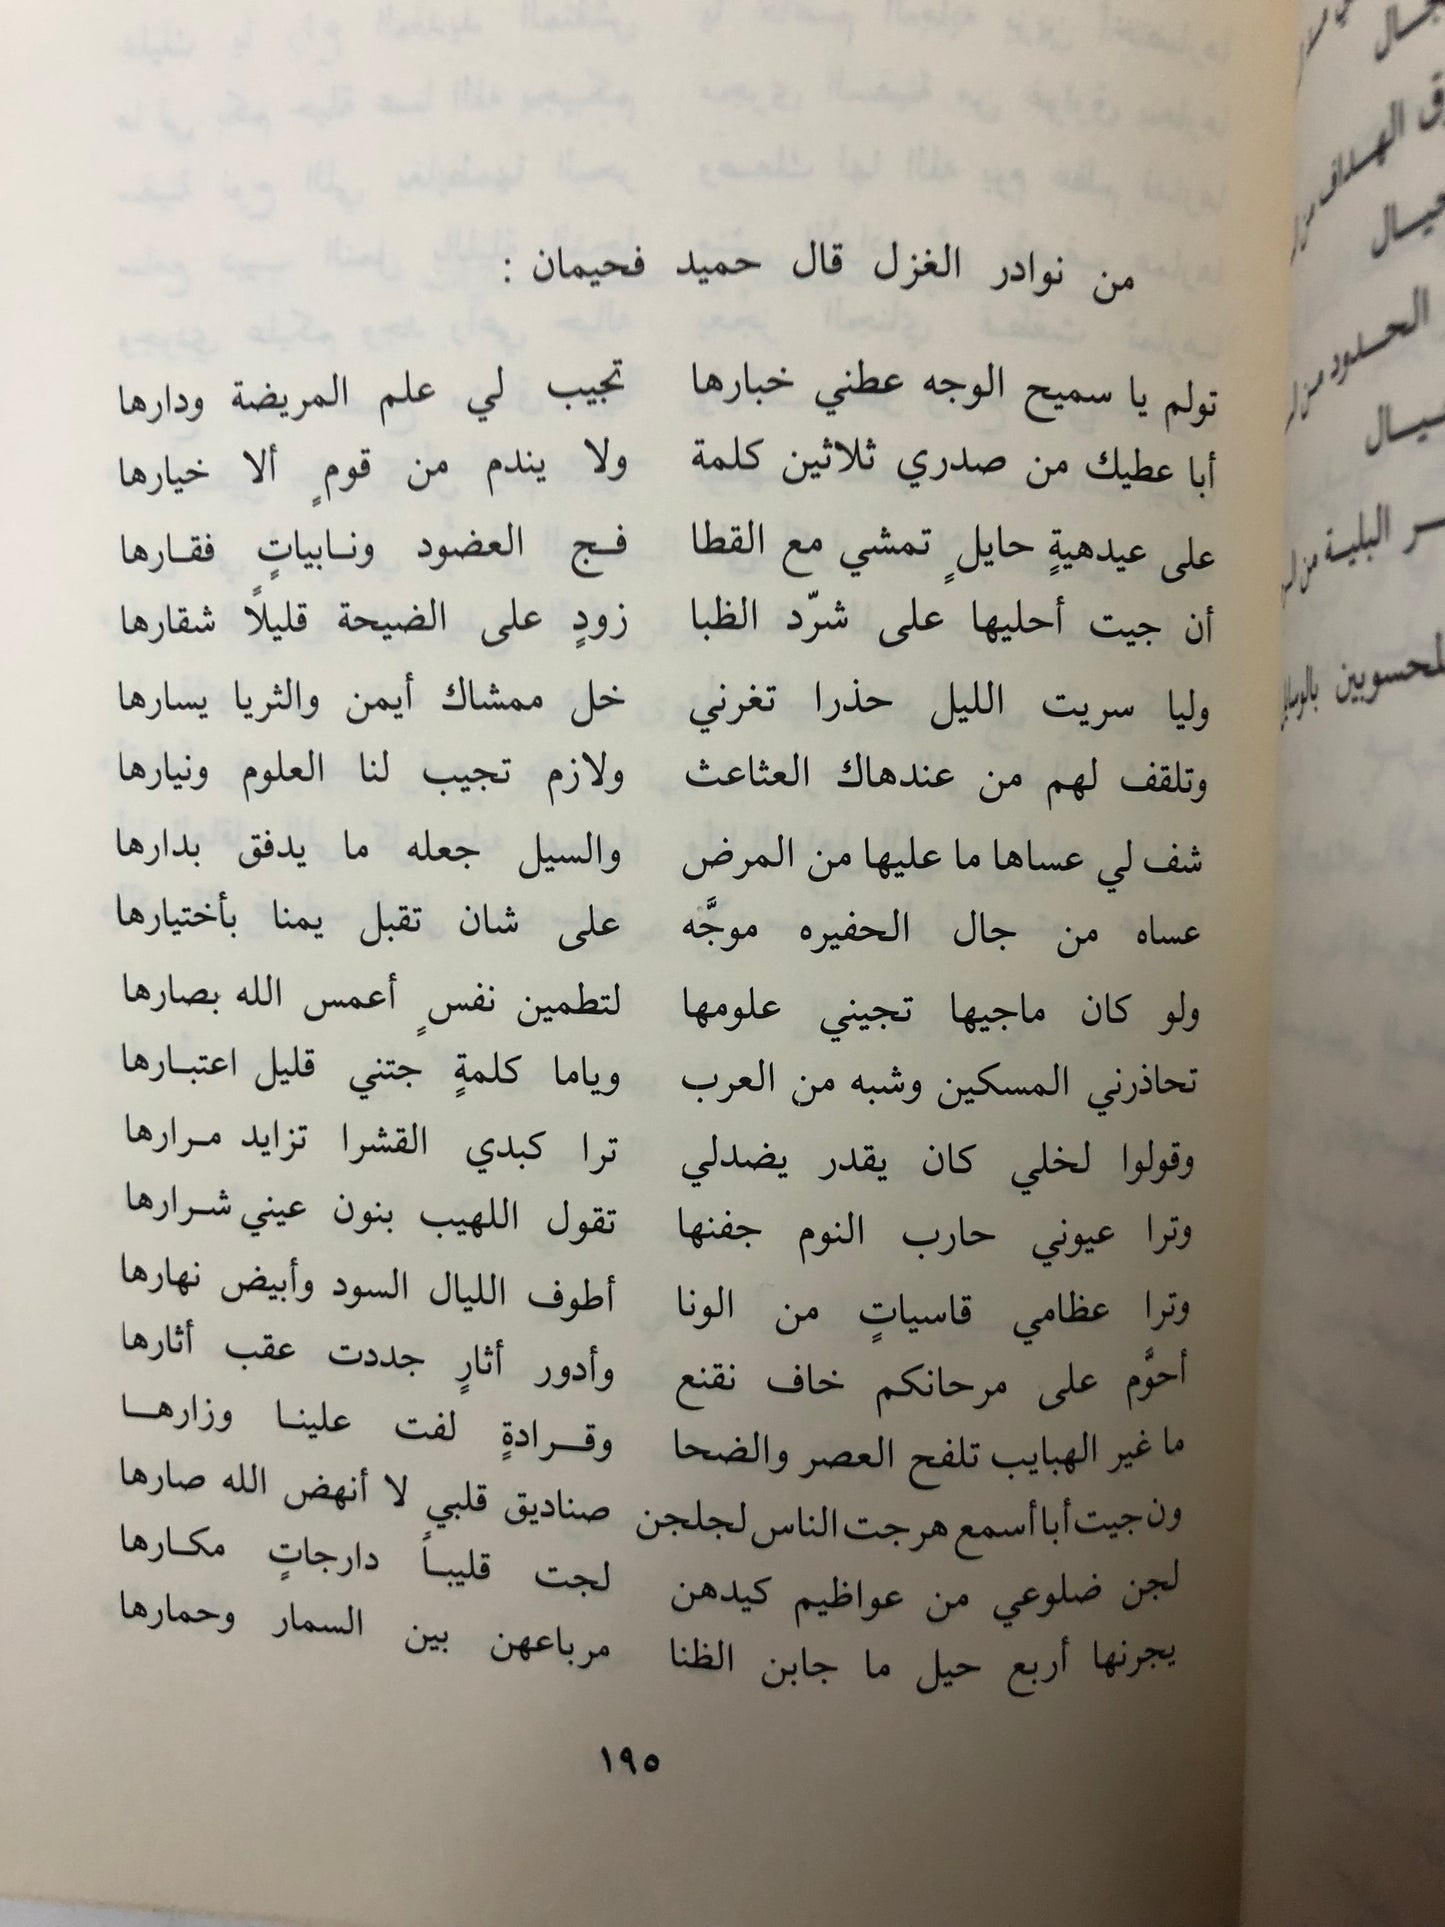 من نوادر الغزل قال حميد فحيمان :
تولم يا سميح الوجه عطني خبارها تجيب لي علم المريضة ودارها
أبا عطيك من صدري ثلاثين كلمة ولا يندم من قومٍ ألا خيارها
على عيدهيةٍ حايلٍ تمشي مع القطا فج العضود ونابياتٍ فقارها
أن جيت أحليها على شرّد الظبا زودٍ على الضيحة قليلًا شقارها
وليا سريت الليل حذرا تغرني خل ممشاك أيمن والثريا يسارها
وتلقف لهم من عندهاك العثاعث ولازم تجيب لنا العلوم ونيارها
شف لي عساها ما عليها من المرض والسيل جعله ما يدفق بدارها
عساه من جال الحفيره موجَّه على شان تقبل يمنا بأختيارها
ولو كان ماجيها تجيني علومها لتطمين نفسٍ أعمس الله بصارها
تحاذرني المسكين وشبه من العرب وياما كلمةٍ جتني قليل اعتبارها
وقولوا لخلي كان يقدر يضدلي ترا كبدي القشرا تزايد مرارها
وترا عيوني حارب النوم جفنها تقول اللهيب بنون عيني شرارها
وترا عظامي قاسياتٍ من الونا أطوف الليال السود وأبيض نهارها
أحوَّم على مرحانكم خاف نقنع وأدور أثارٍ جددت عقب أثارها
ما غير الهبايب تلفح العصر والضحا وقرادةٍ لفت علينا وزارها
ون جيت أبا أسمع هرجت الناس لجلجن صناديق قلبي لا أنهض الله صارها
لجن ضلوعي من عواظيم كيدهن لجت قليباً دارجاتٍ مكارها
يجرنها أربع حيل ما جابن الظنا مرباعهن بين السمار وحمارها
١٩٥